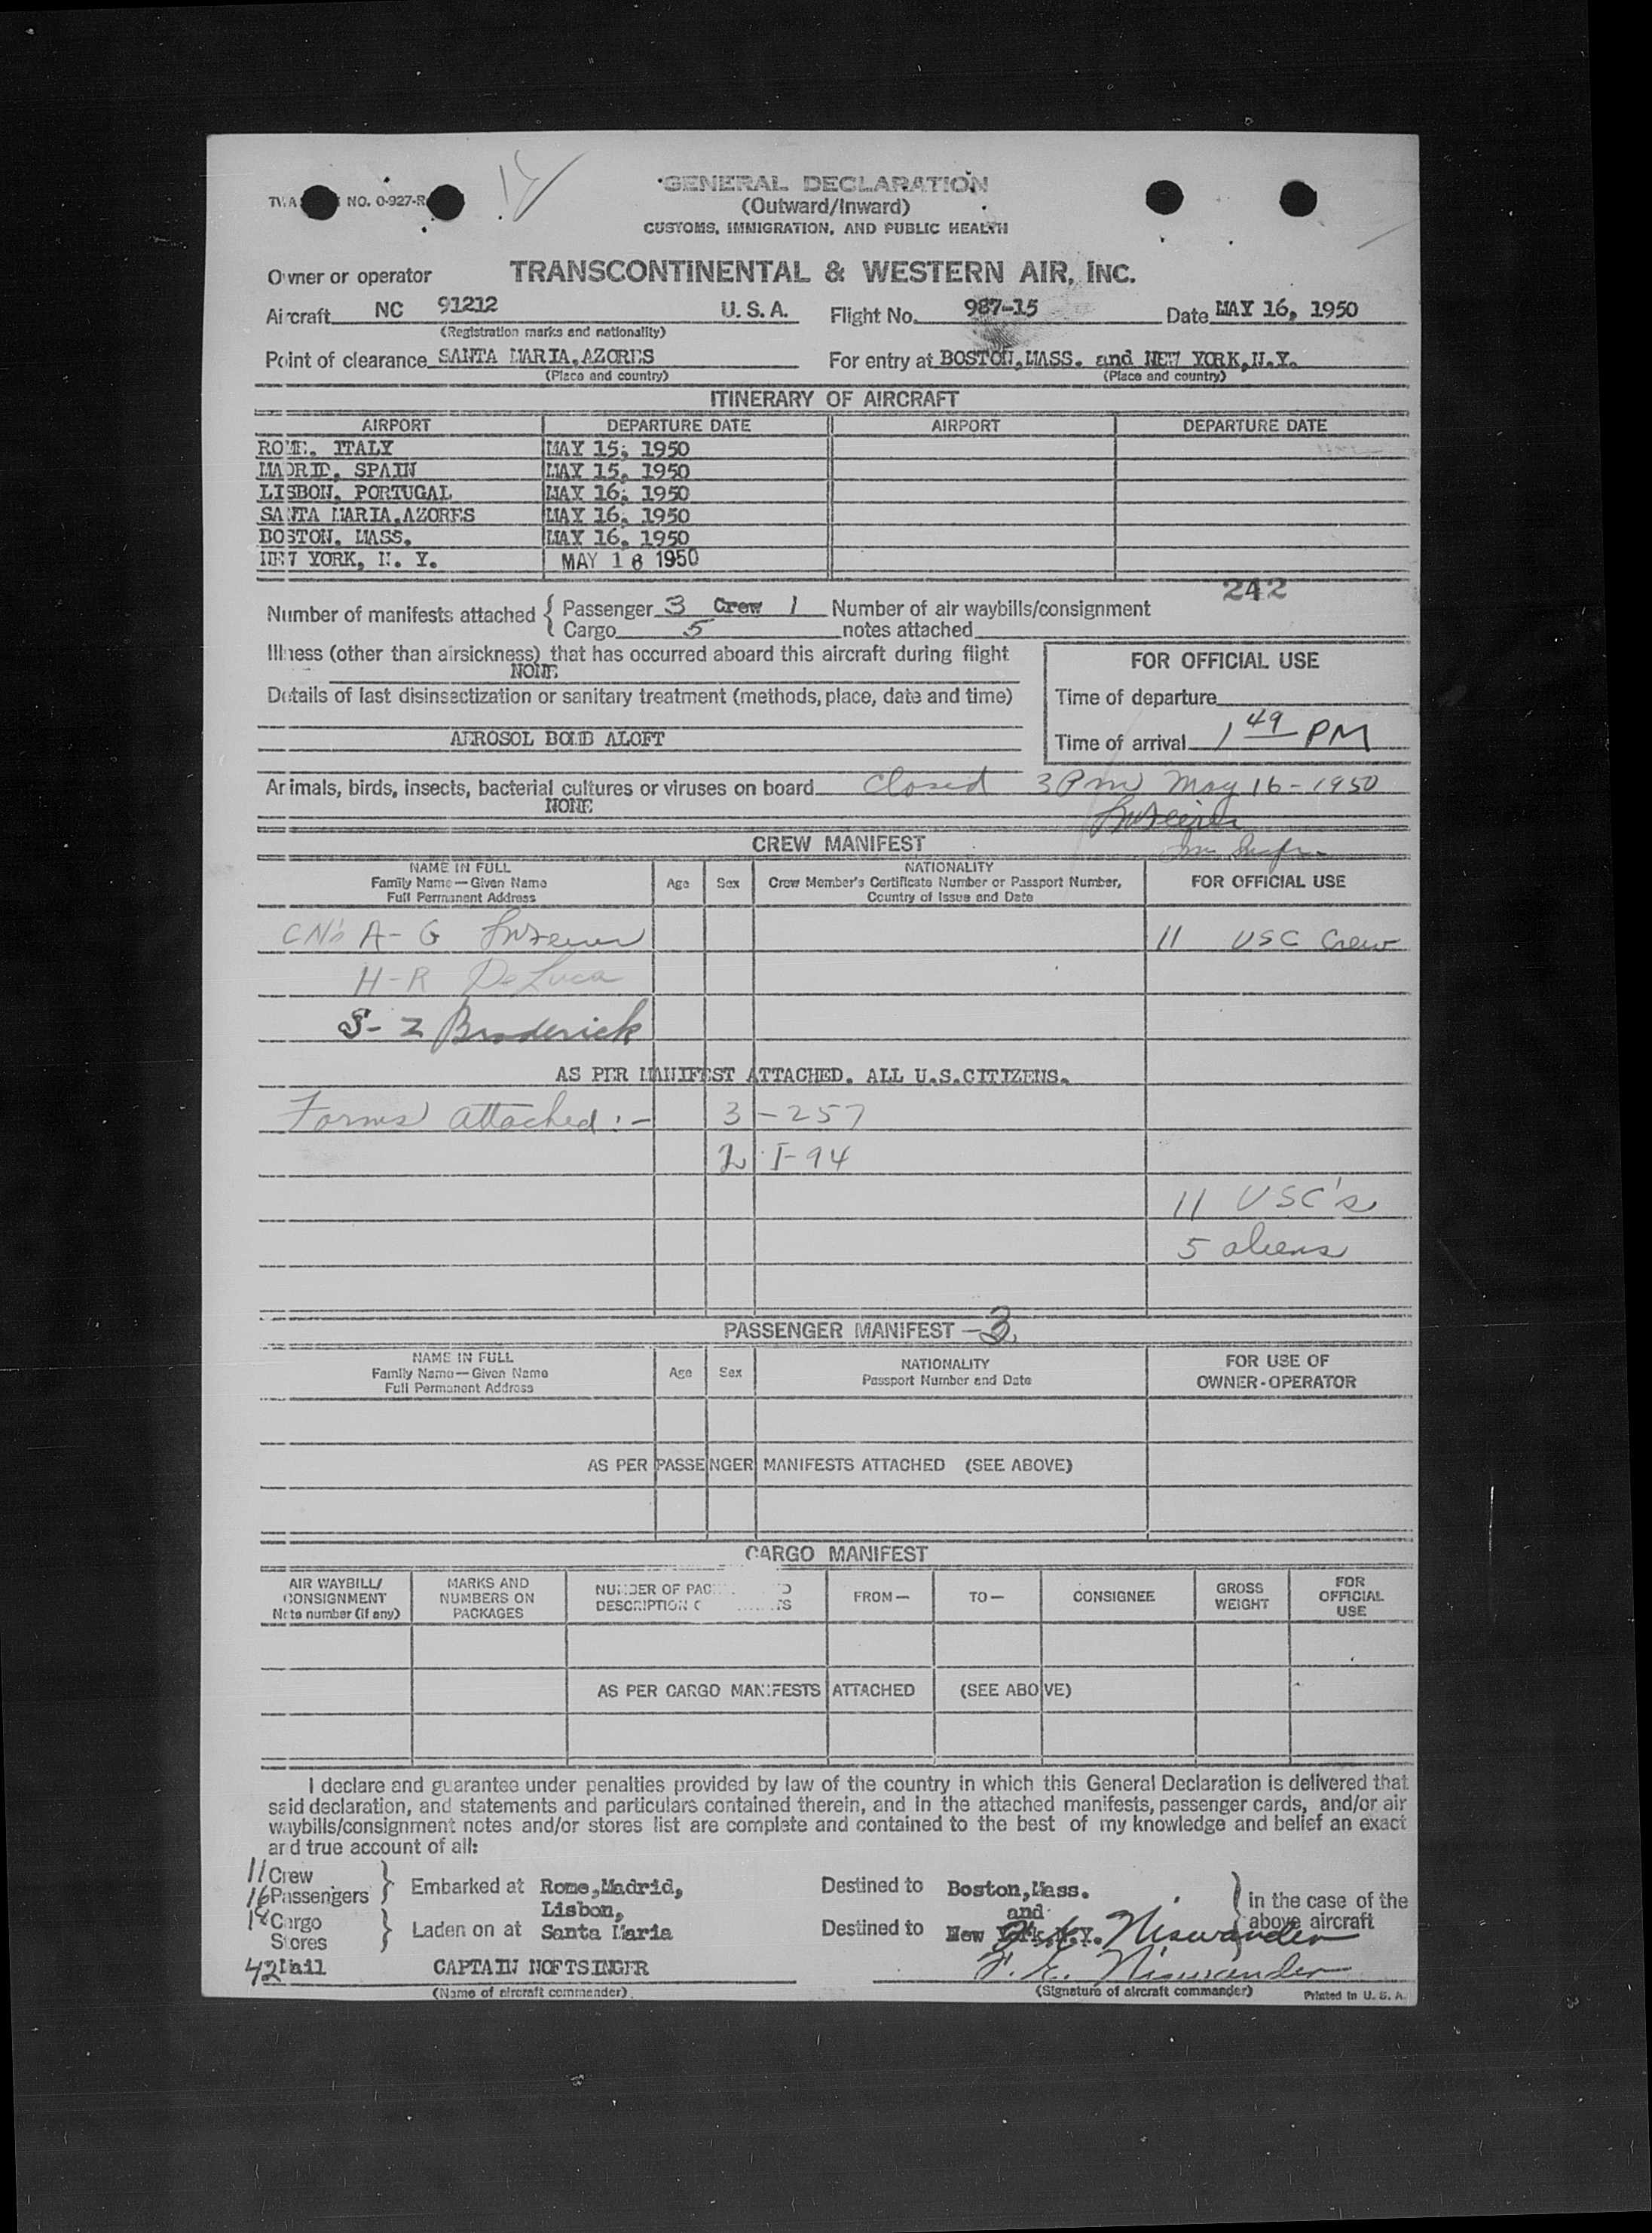 GENERAL DECLARATION
TWA NO. 0-927-R
(Outward/Inward)
CUSTOMS, IMMIGRATION, AND PUBLIC HEALTH
Owner or operator TRANSCONTINENTAL & WESTERN AIR, INC.
Aircraft NC 91212 U. S. A. Flight No. 987-15 Date MAY 16, 1950
(Registration marks and nationality)
Point of clearance SANTA MARIA,AZORES For entry at BOSTON,MASS. and NEW YORK,N.Y.
(Place and country) (Place and country)
ITINERARY OF AIRCRAFT
AIRPORT DEPARTURE DATE AIRPORT DEPARTURE DATE
ROME, ITALY MAY 15, 1950
MADRID, SPAIN MAY 15, 1950
LISBON, PORTUGAL MAY 16, 1950
SANTA MARIA,AZORES MAY 16, 1950
BOSTON, MASS. MAY 16, 1950
NEW YORK, N. Y. MAY 16 1950
242
Number of manifests attached { Passenger 3 Crew 1 Number of air waybills/consignment
Cargo 5 notes attached
Illness (other than airsickness) that has occurred aboard this aircraft during flight
NONE
FOR OFFICIAL USE
Details of last disinsectization or sanitary treatment (methods, place, date and time)
Time of departure
AEROSOL BOMB ALOFT
Time of arrival 1 49 PM
Animals, birds, insects, bacterial cultures or viruses on board Closed 3 Pm May 16-1950
NONE
CREW MANIFEST
NAME IN FULL
Family Name—Given Name
Full Permanent Address
Age Sex
NATIONALITY
Crew Member's Certificate Number or Passport Number,
Country of Issue and Date
FOR OFFICIAL USE
CN's A-G 11 USC Crew
H-R DeLuca
S-Z Broderick
AS PER MANIFEST ATTACHED. ALL U.S.CITIZENS.
Forms attached :- 3 - 257
2 I-94
11 USC's
5 aliens
PASSENGER MANIFEST -3
NAME IN FULL
Family Name—Given Name
Full Permanent Address
Age Sex
NATIONALITY
Passport Number and Date
FOR USE OF
OWNER-OPERATOR
AS PER PASSENGER MANIFESTS ATTACHED (SEE ABOVE)
CARGO MANIFEST
AIR WAYBILL/
CONSIGNMENT
Note number (if any)
MARKS AND
NUMBERS ON
PACKAGES
NUMBER OF PAC
DESCRIPTION
FROM—
TO—
CONSIGNEE
GROSS
WEIGHT
FOR
OFFICIAL
USE
AS PER CARGO MANIFESTS ATTACHED (SEE ABOVE)
I declare and guarantee under penalties provided by law of the country in which this General Declaration is delivered that
said declaration, and statements and particulars contained therein, and in the attached manifests, passenger cards, and/or air
waybills/consignment notes and/or stores list are complete and contained to the best of my knowledge and belief an exact
and true account of all:
11 Crew
16 Passengers } Embarked at Rome,Madrid, Destined to Boston,Mass.
Lisbon, and
Cargo
Stores } Laden on at Santa Maria Destined to New York,N.Y.
} in the case of the
above aircraft
42 Mail
CAPTAIN NOFTSINGER F. E. Niswander
(Name of aircraft commander) (Signature of aircraft commander) Printed in U. S. A.